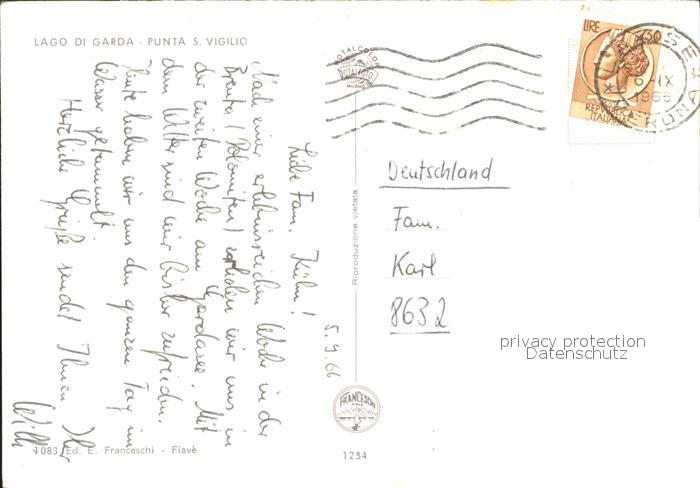 LAGO DI GARDA - PUNTA S. VIGILIO
Liebe Fam. Kühn!
Nach einer erlebnisreichen Woche in der
Brenta (Dolomiten) erholen wir uns in
der zweiten Woche am Gardasee. Mit
dem Wetter sind wir bisher zufrieden.
Heute haben wir uns den ganzen Tag im
Wasser getummelt.
Herzliche Grüße sendet Ihnen Ihr
Willi
5.9.66
1083 Ed. E. Franceschi - Fiavè
TOTALCOLOR
ROTALFOTO
MILANO
Riproduzione vietata
FRANCESCHI
1254
LIRE 30
REPUBBLICA
ITALIANA
IX
1966
VERONA
Deutschland
Fam.
Karl
8632
privacy protection
Datenschutz